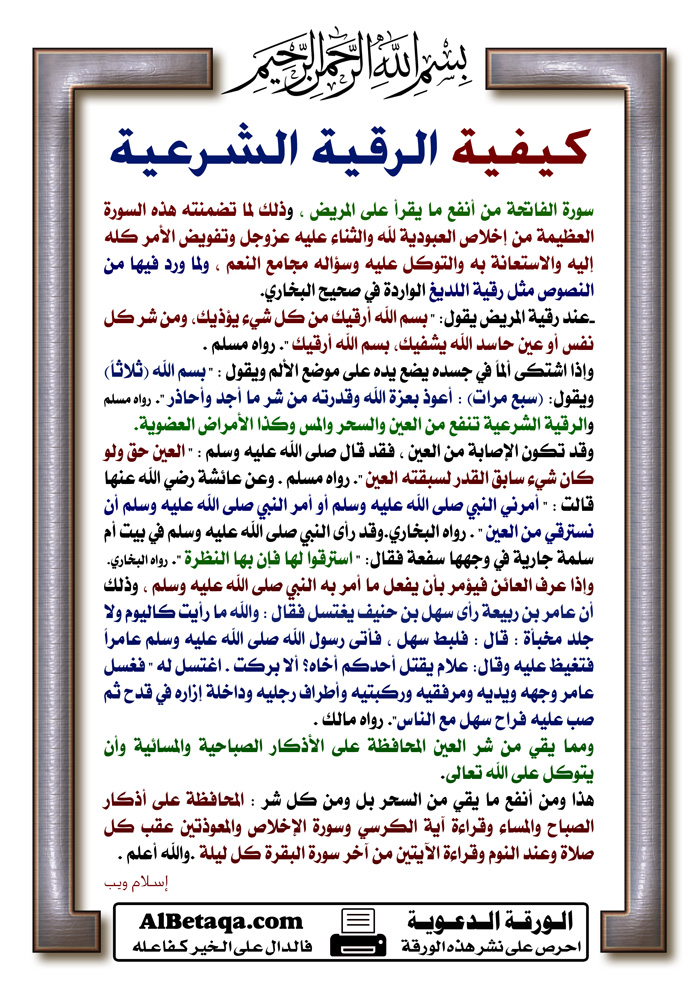 بسم الله الرحمن الرحيم
كيفية الرقية الشرعية
سورة الفاتحة من أنفع ما يقرأ على المريض ، وذلك لما تضمنته هذه السورة
العظيمة من إخلاص العبودية لله والثناء عليه عزوجل وتفويض الأمر كله
إليه والاستعانة به والتوكل عليه وسؤاله مجامع النعم ، ولما ورد فيها من
النصوص مثل رقية اللديغ الواردة في صحيح البخاري.
-عند رقية المريض يقول: " بسم الله أرقيك من كل شيء يؤذيك، ومن شر كل
نفس أو عين حاسد الله يشفيك، بسم الله أرقيك ". رواه مسلم .
وإذا اشتكى ألماً في جسده يضع يده على موضع الألم ويقول : " بسم الله (ثلاثاً)
ويقول: (سبع مرات) : أعوذ بعزة الله وقدرته من شر ما أجد وأحاذر ". رواه مسلم
والرقية الشرعية تنفع من العين والسحر والمس وكذا الأمراض العضوية.
وقد تكون الإصابة من العين ، فقد قال صلى الله عليه وسلم : " العين حق ولو
كان شيء سابق القدر لسبقته العين ". رواه مسلم . وعن عائشة رضي الله عنها
قالت : " أمرني النبي صلى الله عليه وسلم أو أمر النبي صلى الله عليه وسلم أن
نسترقي من العين " . رواه البخاري.وقد رأى النبي صلى الله عليه وسلم في بيت أم
سلمة جارية في وجهها سفعة فقال: " استرقوا لها فإن بها النظرة ". رواه البخاري.
وإذا عرف العائن فيؤمر بأن يفعل ما أمر به النبي صلى الله عليه وسلم ، وذلك
أن عامر بن ربيعة رأى سهل بن حنيف يغتسل فقال : والله ما رأيت كاليوم ولا
جلد مخبأة : قال : فلبط سهل ، فأتى رسول الله صلى الله عليه وسلم عامراً
فتغيظ عليه وقال: علام يقتل أحدكم أخاه؟ ألا بركت . اغتسل له " فغسل
عامر وجهه ويديه ومرفقيه وركبتيه وأطراف رجليه وداخلة إزاره في قدح ثم
صب عليه فراح سهل مع الناس". رواه مالك .
ومما يقي من شر العين المحافظة على الأذكار الصباحية والمسائية وأن
يتوكل على الله تعالى.
هذا ومن أنفع ما يقي من السحر بل ومن كل شر : المحافظة على أذكار
الصباح والمساء وقراءة آية الكرسي وسورة الإخلاص والمعوذتين عقب كل
صلاة وعند النوم وقراءة الآيتين من آخر سورة البقرة كل ليلة .والله أعلم .
إسلام ويب
الورقة الدعوية
احرص على نشر هذه الورقة
AlBetaqa.com
فالدال على الخير كفاعله